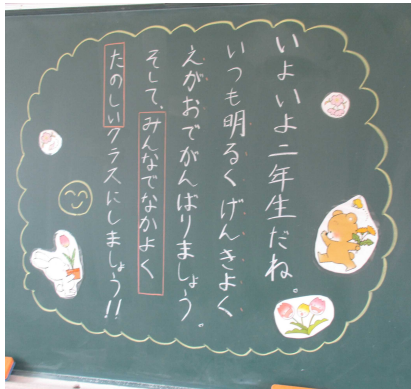 いよいよ二年生だね。
いつも明るくげんきよく
えがおでがんばりましょう。
そして、みんなでなかよく
たのしいクラスにしましょう!!